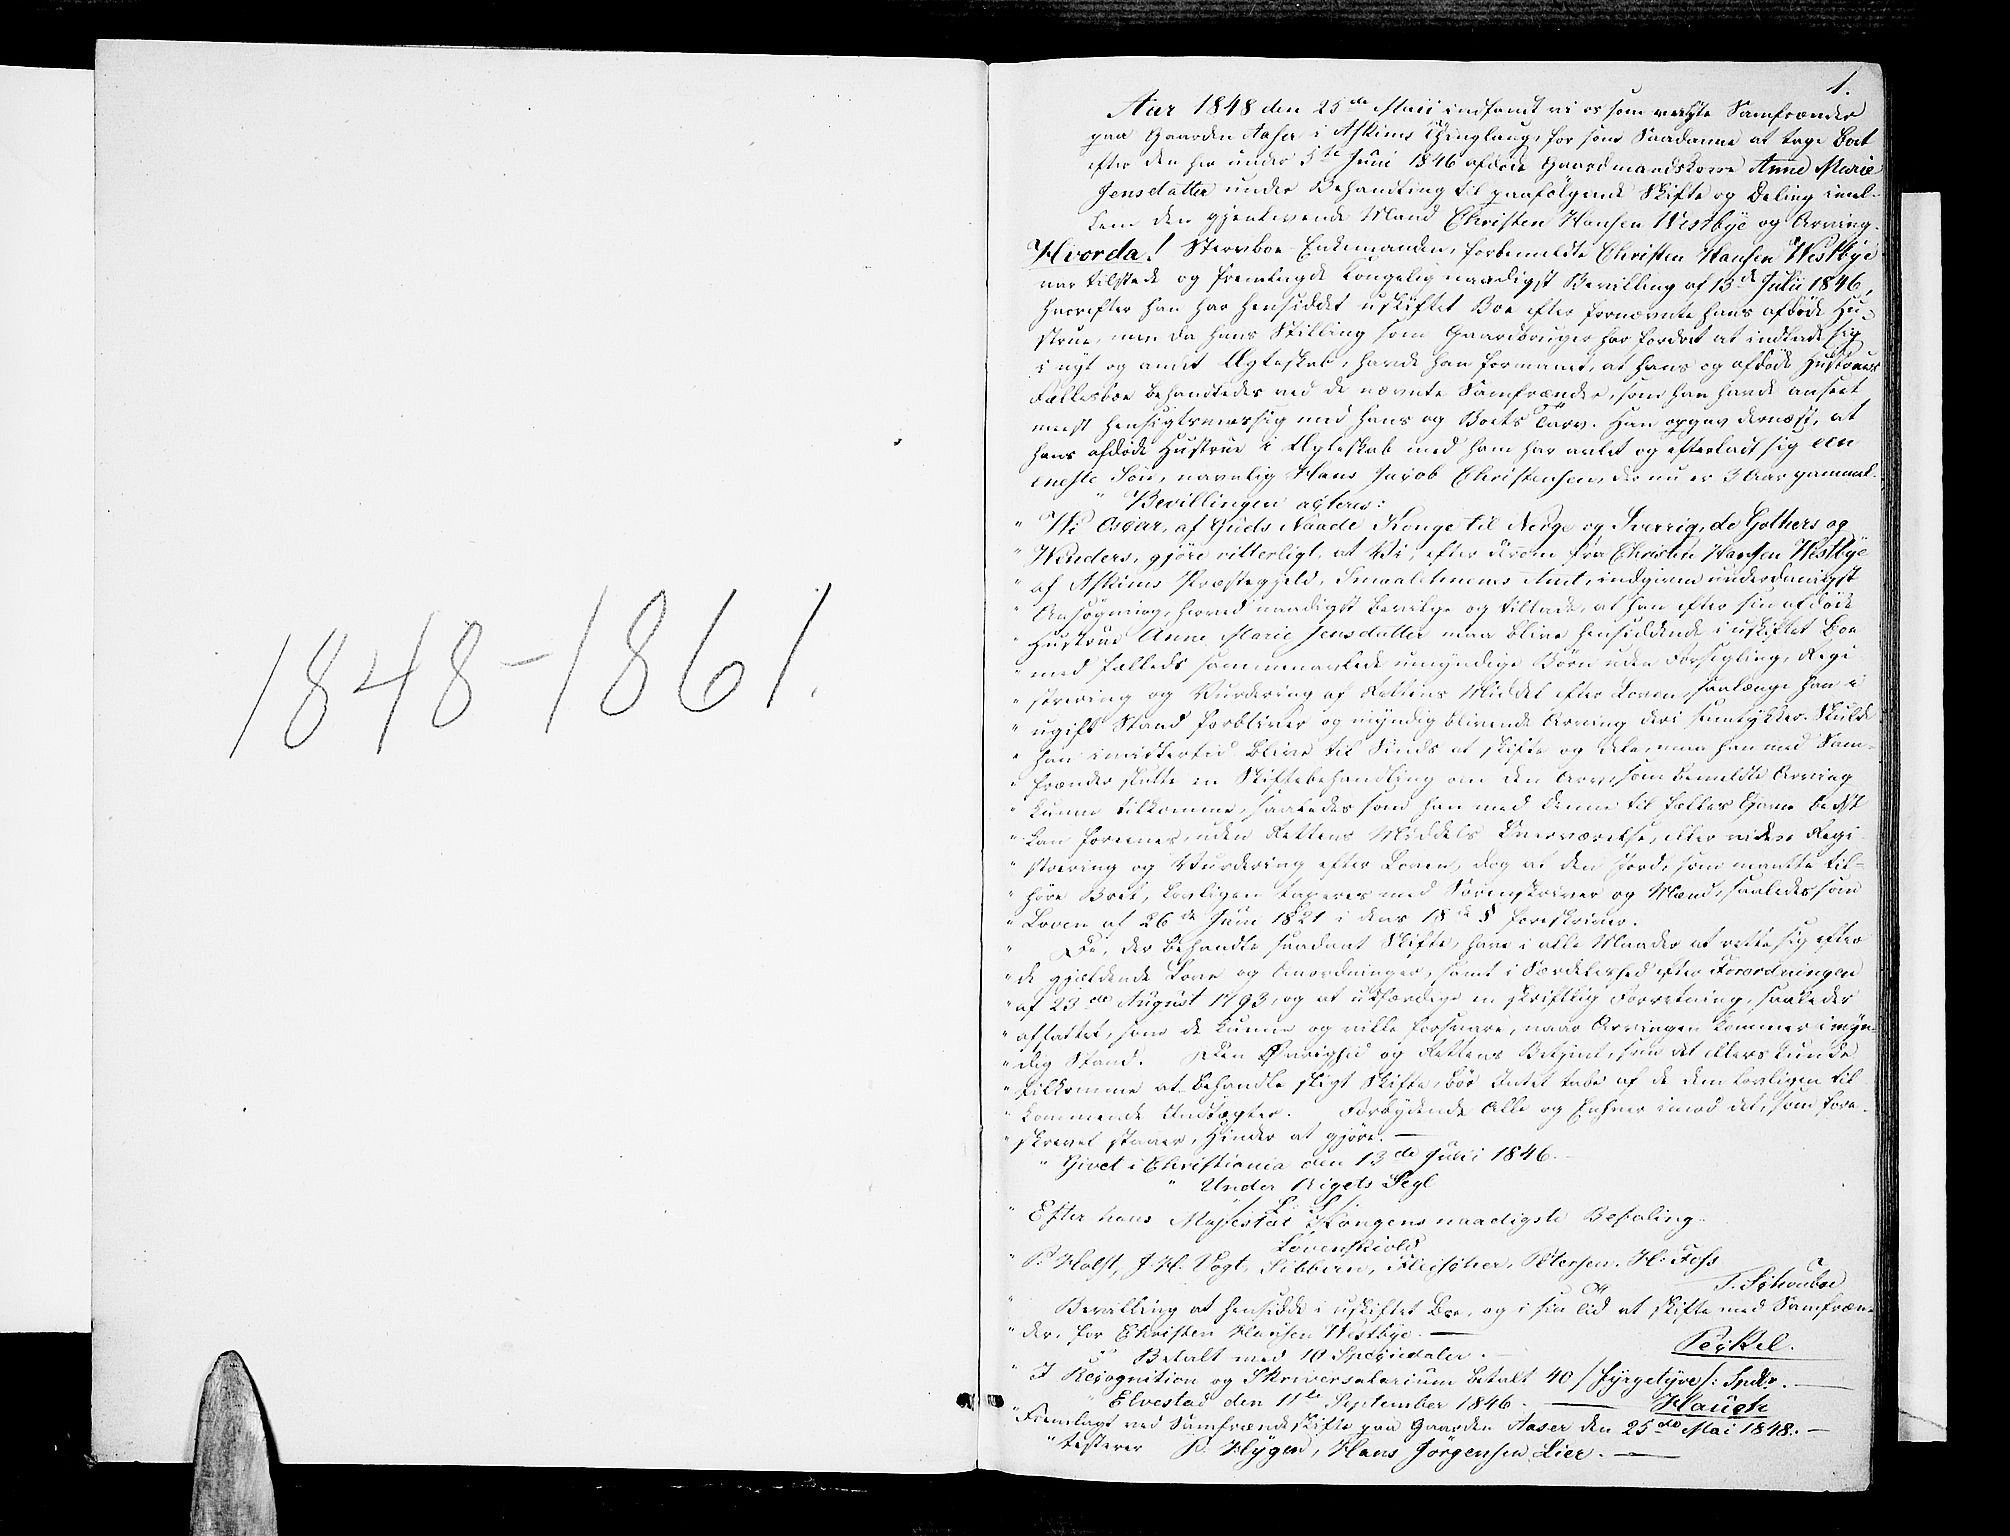 1848-1861.
1.
Aar 1848 den 25de Maii indfandt vi os som valgte Samfrænder
paa Gaarden Aaser i Askims Thinglaug, for som Saadanne at tage Boet
efter den her under 5te Juni 1846 afdøde Gaardmandskone Anne Marie
Jensdatter under Behandling til paafølgende Skifte og Deling imel-
lem den gjenlevende Mand Christen Hansen Westbye og Arving.
Hvorda! Stervboe Enkemanden, forbemeldte Christen Hansen Westbye
var tilstede og fremlagde Kongelig naadigst Bevilling af 13de Julii 1846,
hvorefter han har hensiddet uskiftet Boe efter fornævnte hans afdøde Hu-
strue, men da hans Stilling som Gaardbruger har fordret at indlade sig
i nyt og andet Ægteskab, havde han formanet, at hans og afdøde Hustrues
Fællesboe behandledes ved de nævnte Samfrænder, som han havde anseet
meest hensigtsmæssig med hans og Boets Tarv. Han opgav dernæst, at
hans afdøde Hustrue i Ægteskab med ham har avlet og efterladt sig een
eneste Søn, navnlig Hans Jacob Christensen, der nu er 3 Aar gammel.
" Bevillingen acteres:
" Wi Oscar, af Guds Naade Konge til Norge og Sverrig, de Gothers og
" Wenders, gjøre vitterligt, at Vi, efter derom fra Christen Hansen Westbye
" af Askims Præstegjeld, Smaalehnenes Amt, indgivne underdanigst
" Ansøgning, herved naadigst bevilge og tillade, at han efter sin afdøde
" Hustrue Anne Marie Jensdatter maa blive hensiddende i uskiftet Boe
" med fælleds sammenavlede umyndige Børn uden Forsigling, Regi
" strering og Vurdering af Rettens Middel efter Loven, saalænge han i
" ugift Stand forbliver og myndig blivende Arving deri samtykker. Skulde
" han imidlertid blive til Sinds at skifte og dele, maa han med Sam-
" frænder slutte en Skiftebehandling om den Arv, som bemeldte Arving
" kunne tilkomme, saaledes som han med denne til fælles Gavn bedst
" kan forenes, uden Rettens Middels Nærværelse, eller videre Regi-
" strering og Vurdering efter Loven, dog at den Jord, som maatte til-
" høre Boet, lovligen taxeres med Sorenskriver og Mænd, saaledes som
" Loven af 26de Juni 1821 i dens 18de § foreskriver.
" De, der behandle saadant Skifte, have i alle Maader at rette sig efter
" de gjældende Love og Anordninger, samt i Særdeleshed efter Forordningen
" af 23de August 1793, og at udfærdige en skriftlig Forretning, saaledes
" affattet, som de kunne og ville forsvare, naar Arvingen kommer i myn-
" dig Stand. Den Øvrighed og Rettens Betjent, som det ellers kunde
" tilkomme at behandle sligt Skifte, bør Intet tabe af de dem lovligen til-
" kommende Indtægter. Forbydende Alle og Enhver imod det, som fore-
" skrevet staaer, Hinder at gjøre.—
" Givet i Christiania den 13de Julii 1846.—
" Under Rigets Segl
L. S.
" Efter hans Majestæt Kongens naadigste Befaling.
Løvenskiold
" P. Holst, J. H. Vogt, Sibbern, Fleischer, Petersen. H. Foss
T. Schouboe
" Bevilling at hensidde i uskiftet Boe, og i sin Tid at skifte med Samfræn-
" der, for Christen Hansen Westbye.—
Peckel.
" Betalt med 10 Speciedaler.—
" I Recognition og Skriversalarium betalt 40 /: fyrgetyve :/ Spdlr.—
" Elvestad den 11te September 1846.— Hauch
" Fremlagt ved Samfrændeskifte paa Gaarden Aaser den 25de Mai 1848.—
" testerer P. Hygen, Hans Jørgensen Lier.—